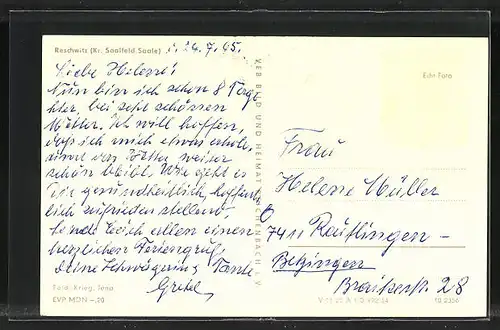 Reschwitz (Kr. Saalfeld Saale) d. 24.7.65.
Liebe Helene!
Nun bin ich schon 8 Tage
hier, bei sehr schönem
Wetter. Ich will hoffen,
daß ich mich etwas erhole,
und das Wetter weiter
schön bleibt. Wie geht es
Dir gesundheitlich, hoffent-
lich zufriedenstellend.
Sende Euch allen einen
herzlichen Feriengruß
Deine Schwägerin u. Tante
Gretel
Foto: Krieg, Jena
EVP MDN -,20
VEB BILD UND HEIMAT REICHENBACH i. V.
Echt Foto
Frau
Helene Müller
7411 Reutlingen-
Betzingen
28